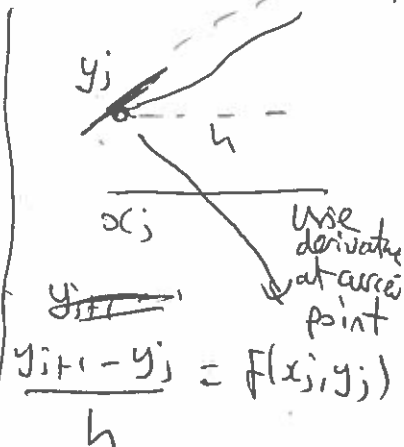 yj
h
xj
use
derivative
at current
point
yj+1
yj+1 - yj = f(xj, yj)
h